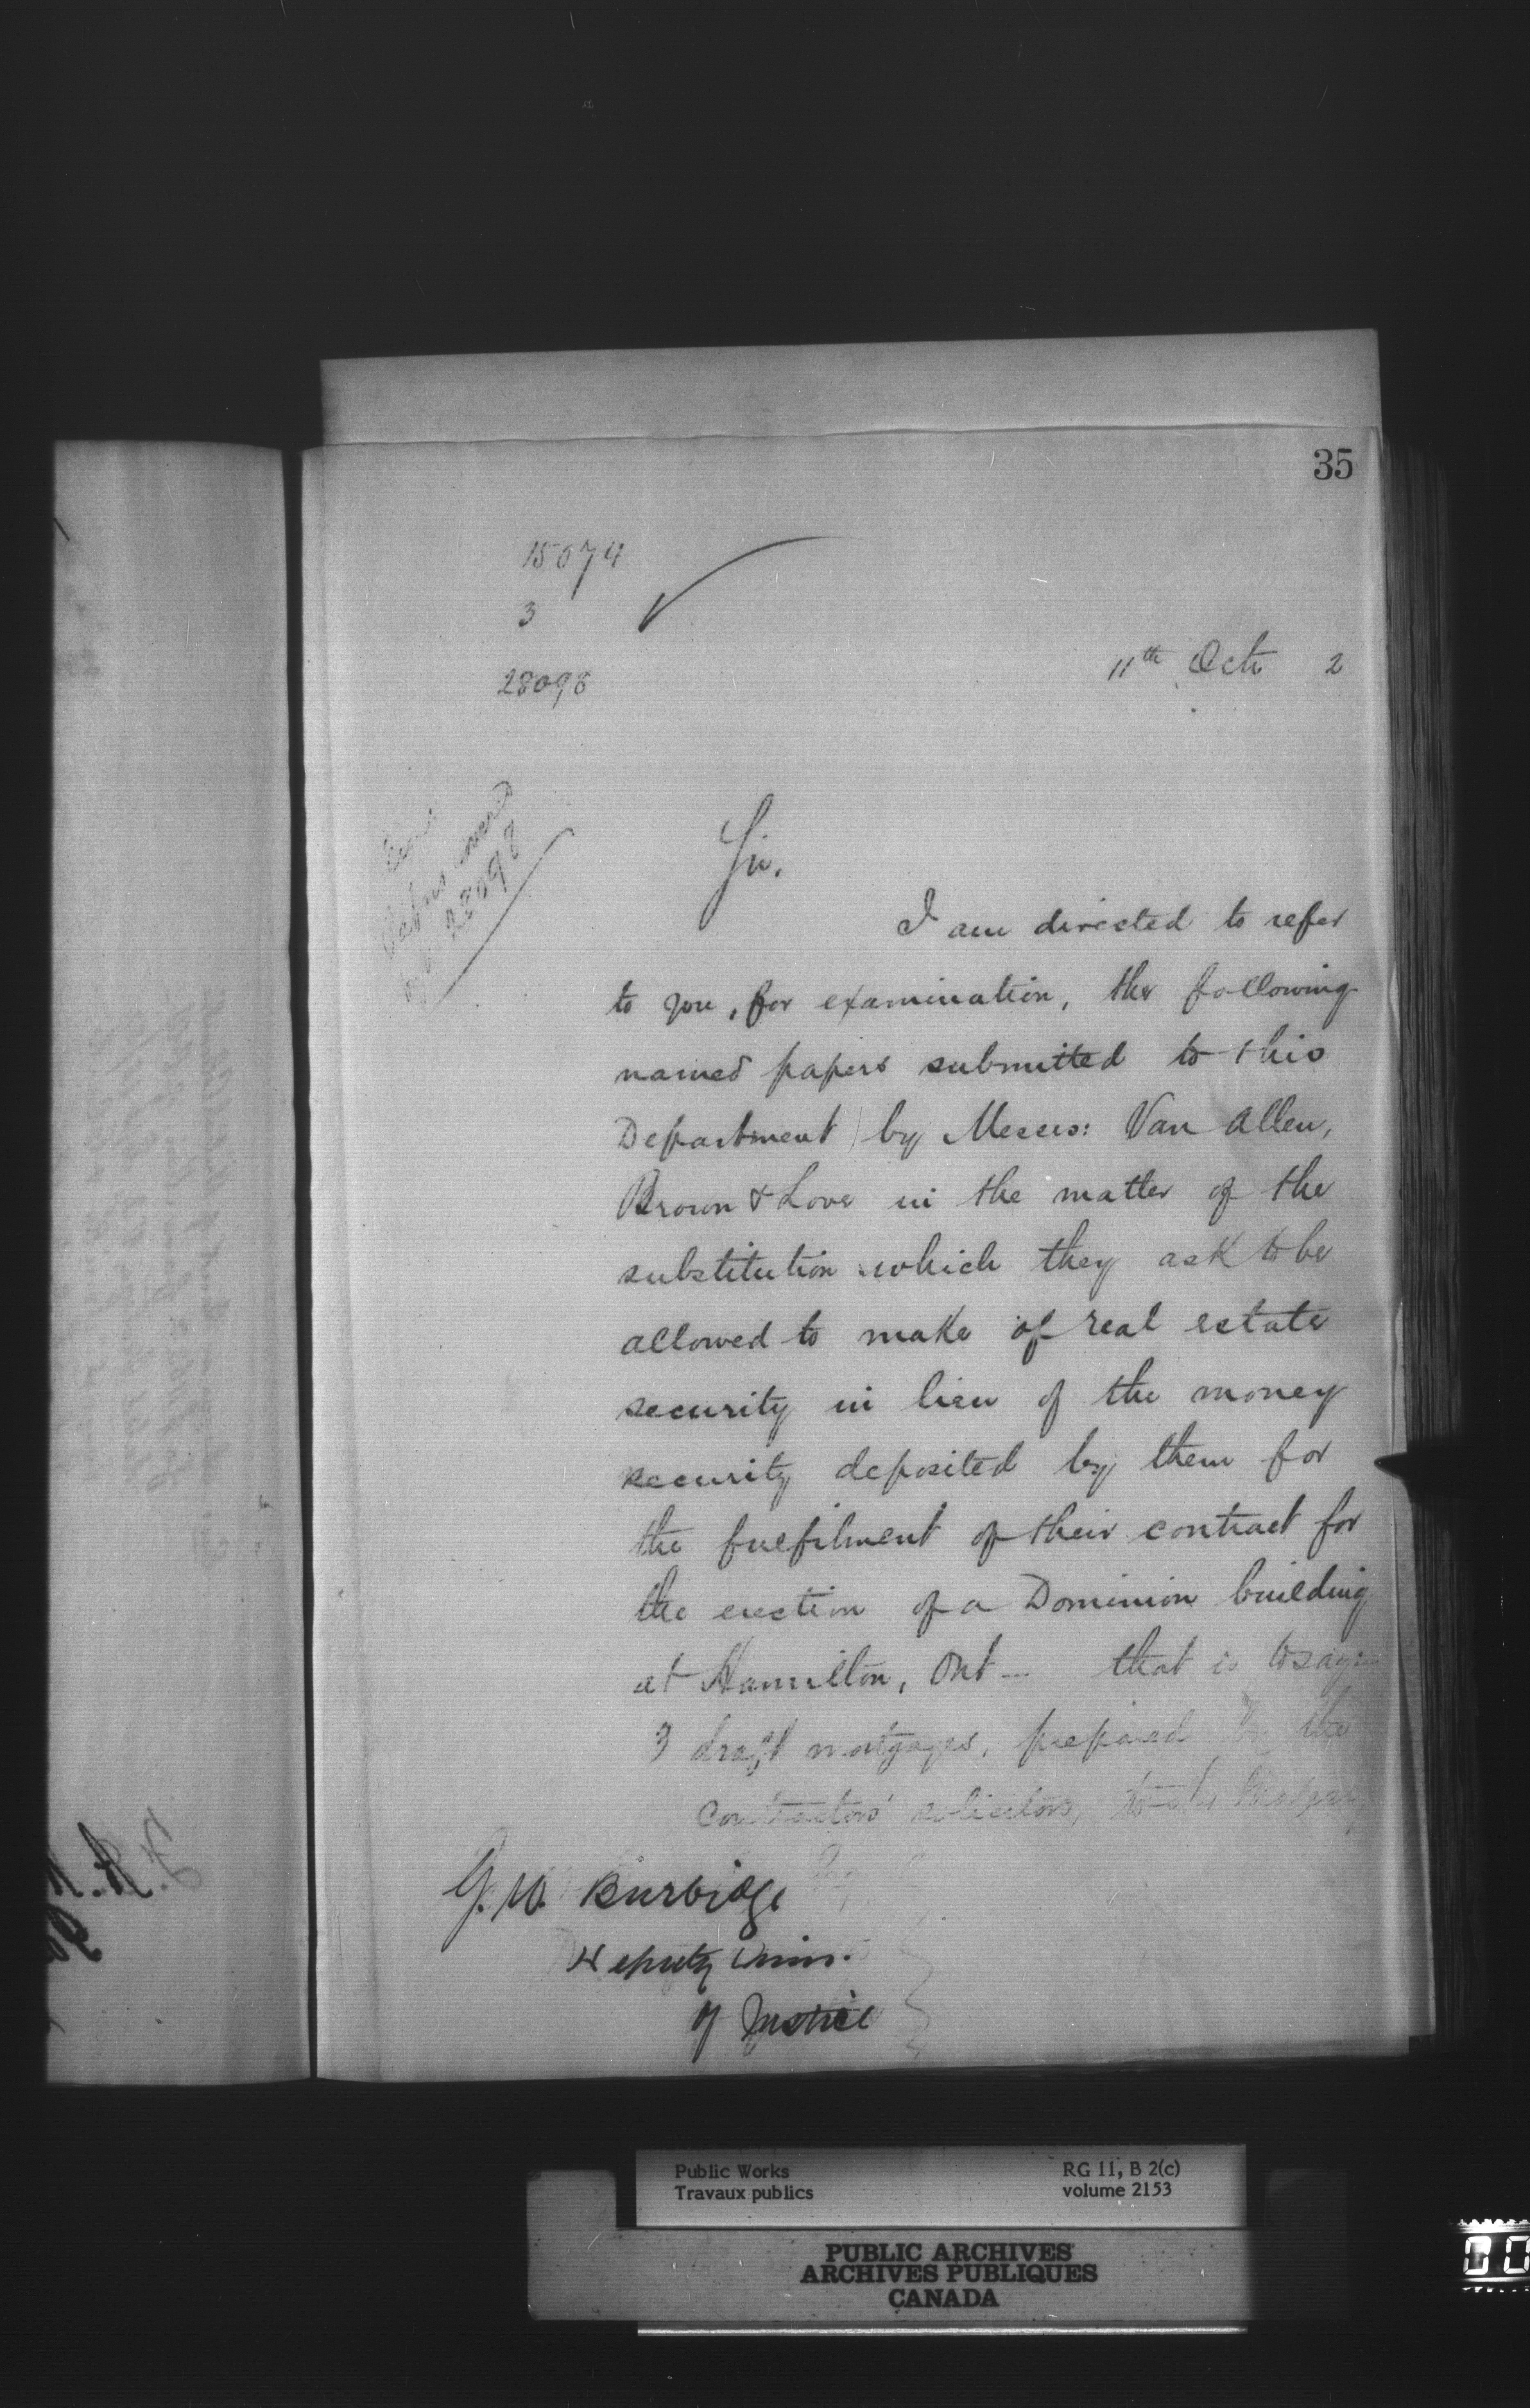 35
15074
3
28098
11th Octr 2
28098
Sir.
I am directed to refer
to you, for examination, the following
named papers submitted to this
Department by Messrs: Van Allen,
Brown & Love in the matter of the
substitution which they ask to be
allowed to make of real estate
security in lieu of the money
security deposited by them for
the fulfilment of their contract for
the erection of a Dominion building
at Hamilton, Ont — that is to say:—
3 draft mortgages, prepared by the
contractors' solicitors,
G. W. Burbidge
Deputy Min.
of Justice
Public Works
Travaux publics
RG 11, B 2(c)
volume 2153
PUBLIC ARCHIVES
ARCHIVES PUBLIQUES
CANADA